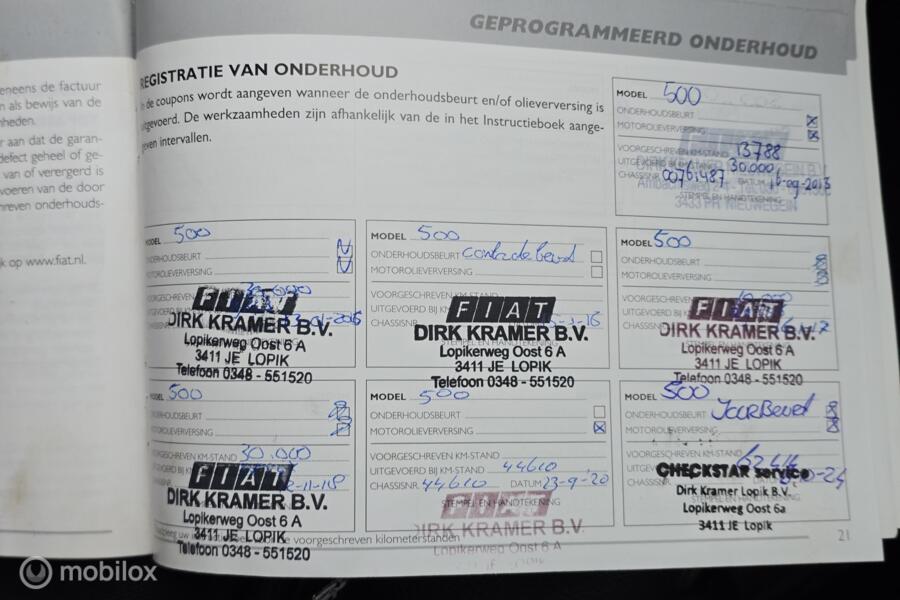 GEPROGRAMMEERD ONDERHOUD
eneens de factuur
n als bewijs van de
heden.
r aan dat de garan-
defect geheel of ge-
van of verergerd is
voeren van de door
hreven onderhouds-
k op www.fiat.nl.
REGISTRATIE VAN ONDERHOUD
In de coupons wordt aangeven wanneer de onderhoudsbeurt en/of olieverversing is
uitgevoerd. De werkzaamheden zijn afhankelijk van de in het Instructieboek aange-
geven intervallen.
MODEL 500
ONDERHOUDSBEURT
MOTOROLIEVERVERSING
VOORGESCHREVEN KM-STAND 13788
UITGEVOERD BIJ KM-STAND 30.000
CHASSISNR. 00761487 DATUM 16-09-2013
STEMPEL EN HANDTEKENING
3433 PR NIEUWEGEIN
MODEL 500
ONDERHOUDSBEURT
MOTOROLIEVERVERSING
VOORGESCHREVEN
UITGEVOERD BIJ
CHASSISNR.
FIAT
DIRK KRAMER B.V.
Lopikerweg Oost 6 A
3411 JE LOPIK
Telefoon 0348 - 551520
MODEL 500
ONDERHOUDSBEURT
MOTOROLIEVERVERSING
VOORGESCHREVEN KM-STAND
UITGEVOERD BIJ KM
CHASSISNR.
FIAT
DIRK KRAMER B.V.
STEMPEL EN HANDTEKENING
Lopikerweg Oost 6 A
3411 JE LOPIK
Telefoon 0348 - 551520
MODEL 500
ONDERHOUDSBEURT
MOTOROLIEVERVERSING
VOORGESCHREVEN
UITGEVOERD BIJ
CHASSISNR.
FIAT
DIRK KRAMER B.V.
Lopikerweg Oost 6 A
3411 JE LOPIK
Telefoon 0348 - 551520
MODEL 500
ONDERHOUDSBEURT
MOTOROLIEVERVERSING
VOORGESCHREVEN KM-STAND 30.000
UITGEVOERD BIJ KM
CHASSISNR.
FIAT
DIRK KRAMER B.V.
Lopikerweg Oost 6 A
3411 JE LOPIK
Telefoon 0348 - 551520
MODEL 500
ONDERHOUDSBEURT
MOTOROLIEVERVERSING
VOORGESCHREVEN KM-STAND
UITGEVOERD BIJ KM-STAND 44610
CHASSISNR. 44610 DATUM 23-9-20
STEMPEL EN HANDTEKENING
FIAT
DIRK KRAMER B.V.
Lopikerweg Oost 6 A
MODEL 500
ONDERHOUDSBEURT
MOTOROLIEVERVERSING
VOORGESCHREVEN KM-STAND
UITGEVOERD
CHASSISNR.
CHECKSTAR service
STEMPEL EN HANDTEKENING
Dirk Kramer Lopik B.V.
Lopikerweg Oost 6a
3411 JE Lopik
voorgeschreven kilometerstanden
21
mobilox